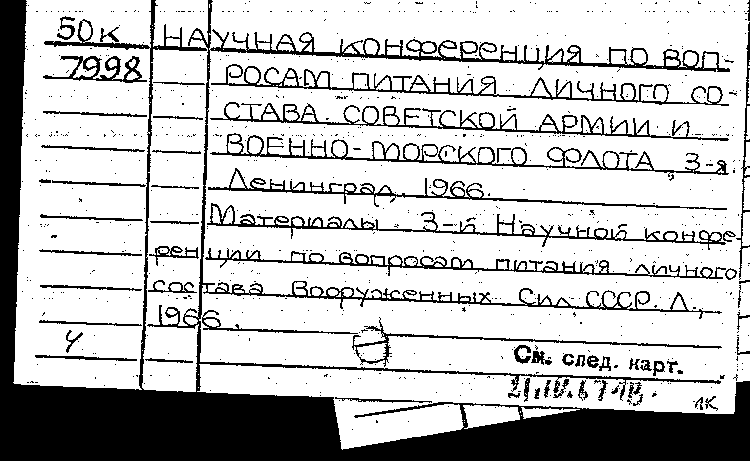 50к НАУЧНАЯ КОНФЕРЕНЦИЯ ПО ВОП-
7998 РОСАМ ПИТАНИЯ ЛИЧНОГО СО-
СТАВА СОВЕТСКОЙ АРМИИ И
ВОЕННО-МОРСКОГО ФЛОТА, 3-я.
Ленинград, 1966.
Материалы 3-й Научной конфе-
ренции по вопросам питания личного
состава Вооруженных Сил СССР. Л.,
1966.
4
См. след. карт.
21.IV.67 ЛВ.
лк